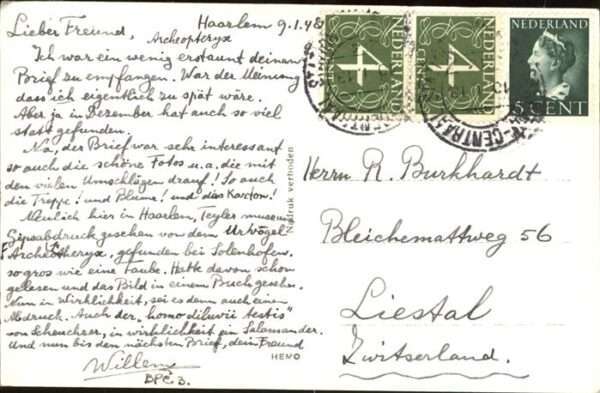 Haarlem 9.1.48
Lieber Freund,
Archeopteryx
Ich war ein wenig erstaunt deinen
Brief zu empfangen. War der Meinung
dass ich eigentlich zu spät wäre.
Aber ja in Dezember hat auch so viel
statt gefunden.
Na, der Brief war sehr interessant
so auch die schöne Fotos u.a. die mit
den vielen Umschlägen drauf! So auch
die Treppe! und Blume! und das Karton!
Neulich hier in Haarlem, Teyler museum
Gipsabdruck gesehen von dem Urvogel
gefunden bei Solenhofen.
so gros wie eine Taube. Hatte davon schon
gelesen und das Bild in einem Buch gesehen.
Nun in Wirklichkeit, sei es denn auch einen
Abdruck. Auch der "homo diluvii testis"
von Scheuchzer, in wirklichkeit ein Salamander.
Und nun bis den nächsten Brief, dein Freund
Willem
BPC 3.
Nadruk verboden
HEMO
NEDERLAND
4
CENT
NEDERLAND
4
CENT
NEDERLAND
5 CENT
Herrn R. Burkhardt
Bleichemattweg 56
Liestal
Zwitserland.